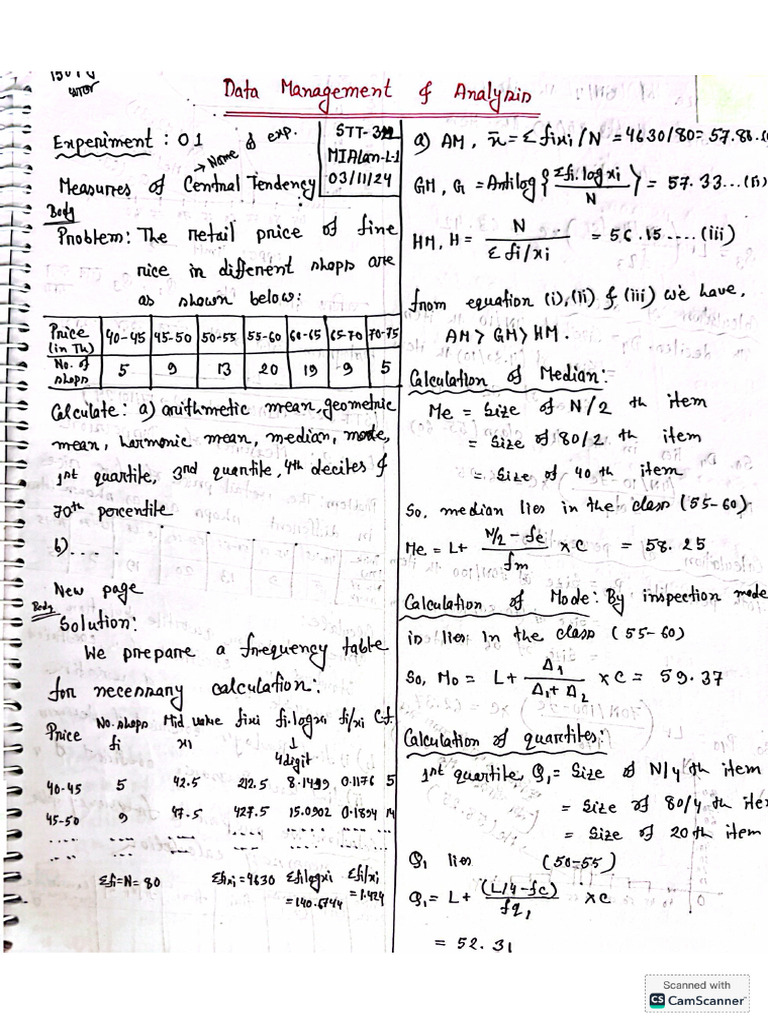 Data Management & Analysis
Experiment : 01
→ Name of exp.
STT-312
MIAlam-L-1
03/11/24
Measures of Central Tendency
Body
Problem: The retail price of fine
rice in different shops are
as shown below:
Price (in Tk) 40-45 45-50 50-55 55-60 60-65 65-70 70-75
No. of shops 5 9 13 20 19 9 5
Calculate: a) arithmetic mean, geometric
mean, harmonic mean, median, mode,
1st quartile, 3rd quartile, 4th deciles &
70th percentile
b)....
New page
Body
Solution:
We prepare a frequency table
for necessary calculation:
Price No. shops fi Mid value xi fixi fi.logxi ↓ 4digit fi/xi C.f
40-45 5 42.5 212.5 8.1499 0.1176 5
45-50 9 47.5 427.5 15.0902 0.1894 14
Σfi=N=80 Σfixi=4630 Σfilogxi =140.6744 Σfi/xi =1.424
a) AM, x̄ = Σfixi/N = 4630/80 = 57.88.(i
GM, G = Antilog {Σfi.logxi / N} = 57.33...(ii)
HM, H = N / Σfi/xi = 56.15.....(iii)
from equation (i),(ii) & (iii) we have,
AM > GM > HM.
Calculation of Median:
Me = Size of N/2 th item
= Size of 80/2 th item
= Size of 40 th item
So, median lies in the class (55-60)
Me = L+ N/2 - fc / fm × C = 58.25
Calculation of Mode: By inspection mode
in lies in the class (55-60)
So, Mo = L+ Δ1 / Δ1+Δ2 × C = 59.37
Calculation of quartiles:
1st quartile, Q1 = Size of N/4 th item
= Size of 80/4 th ite
= Size of 20 th item
Q1 lies (50-55)
Q1 = L+ (L/4 - fc) / fq1 × C
= 52.31
Scanned with
CS CamScanner